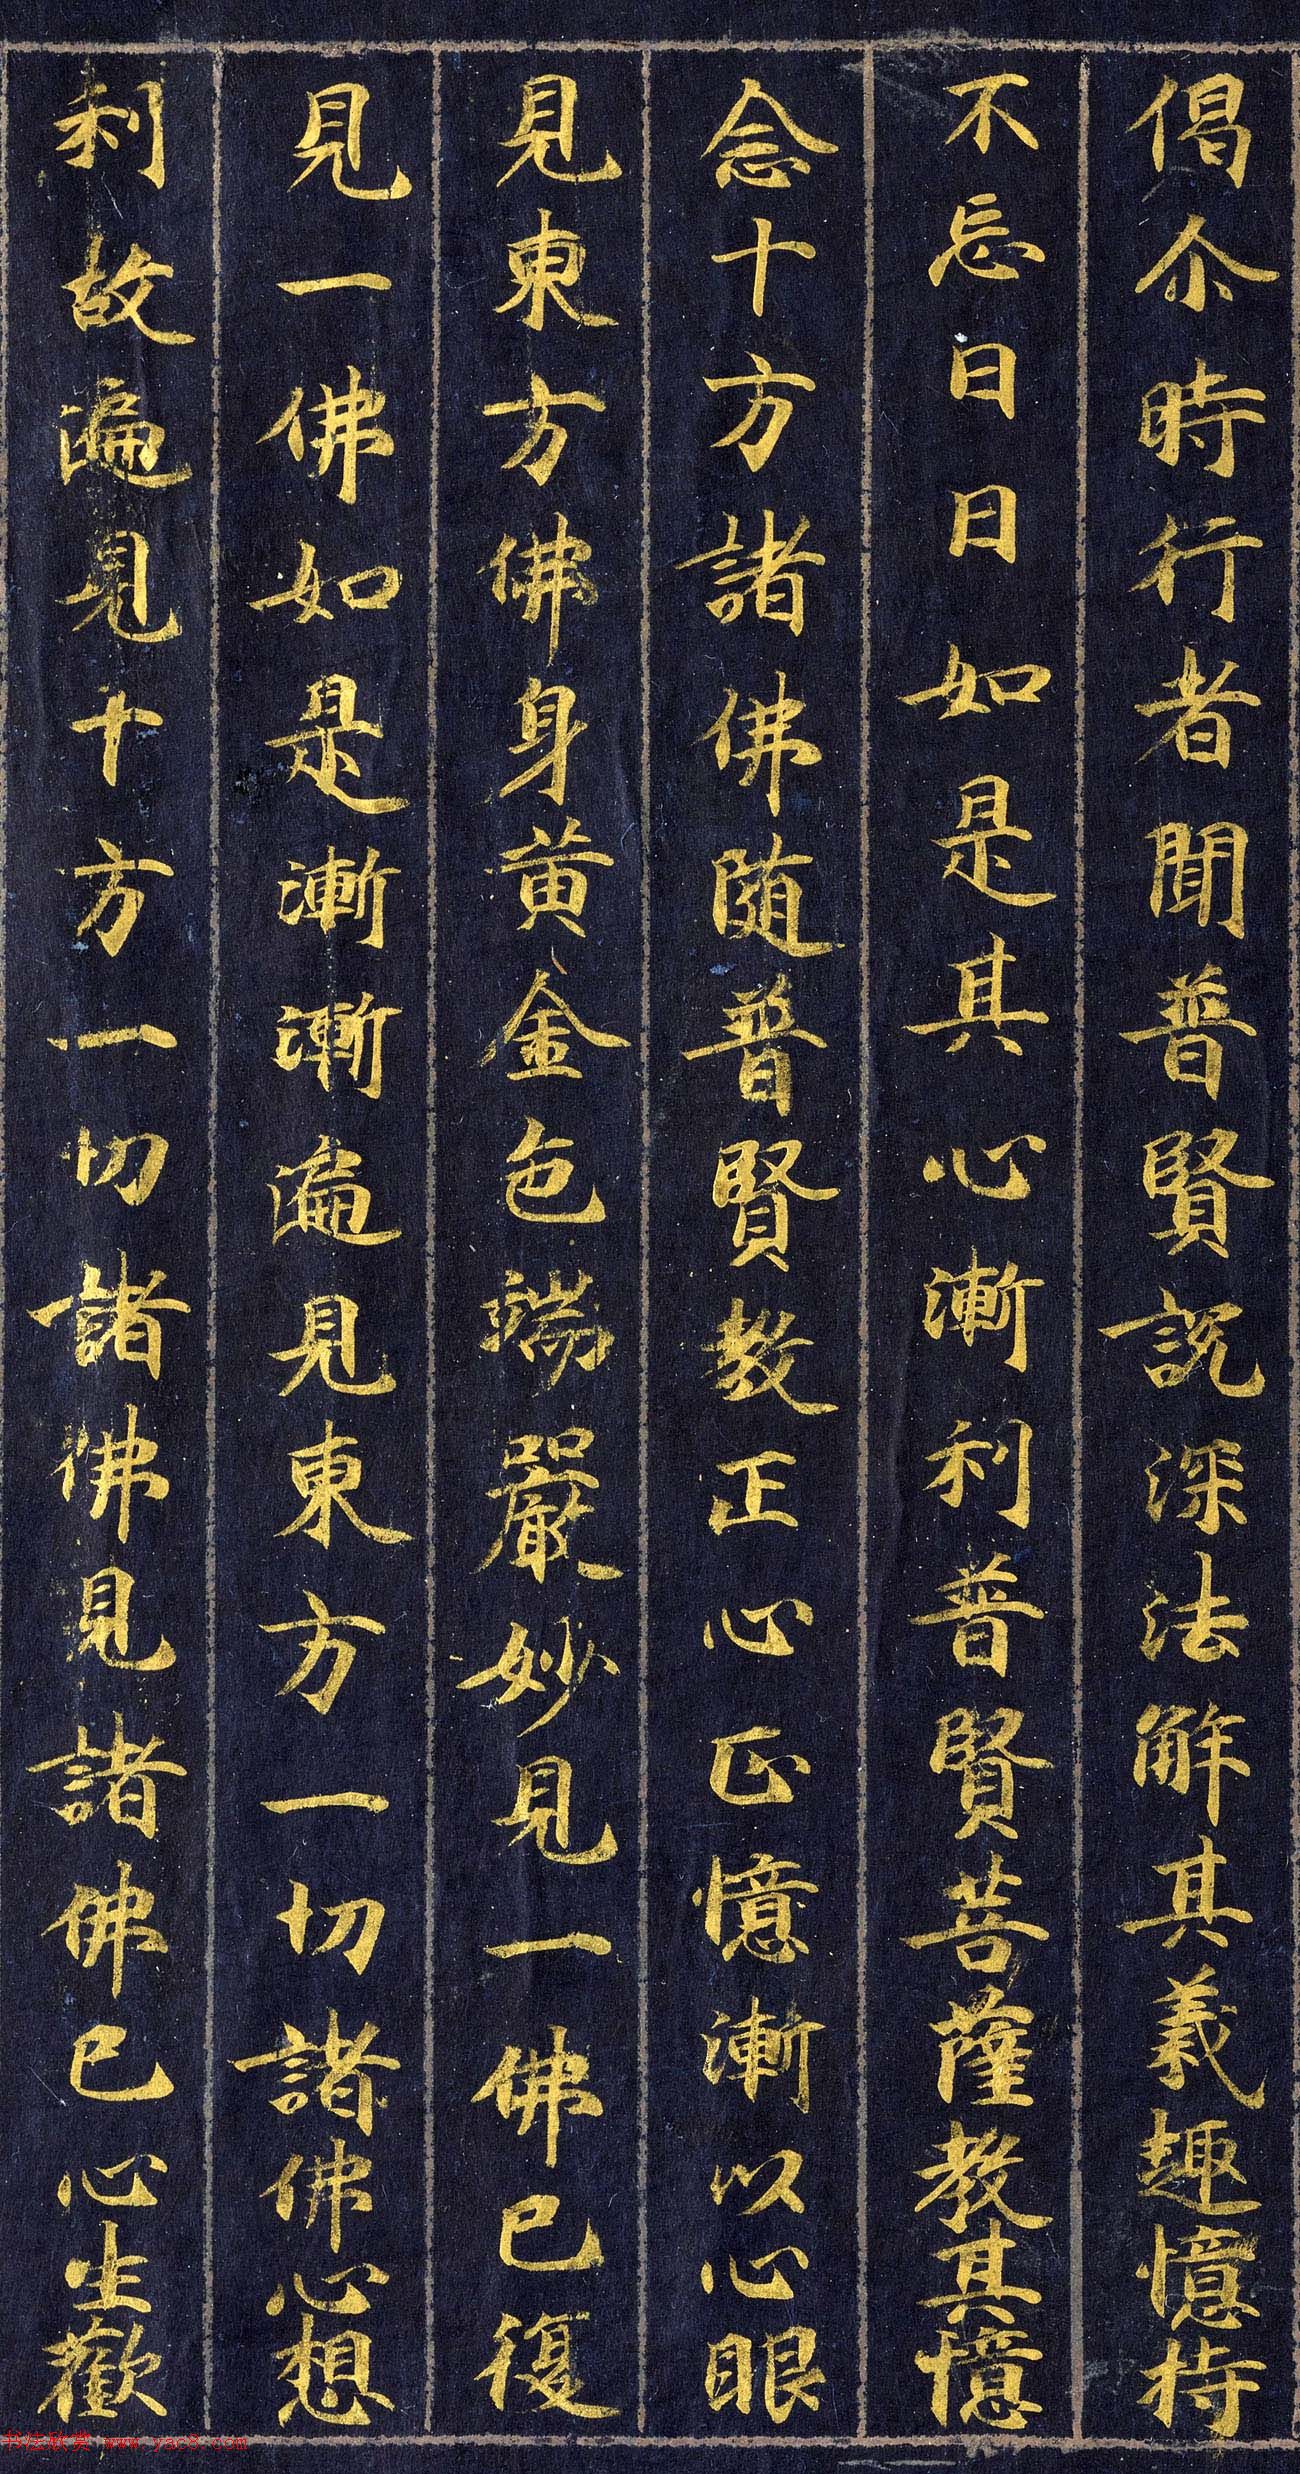 偈尒時行者聞普賢説深法解其義趣憶持
不忘日日如是其心漸利普賢菩薩教其憶
念十方諸佛随普賢教正心正憶漸以心眼
見東方佛身黄金色端嚴妙見一佛已復
見一佛如是漸漸遍見東方一切諸佛心想
利故遍見十方一切諸佛見諸佛已心生歡
书法欣赏 www.yac8.com